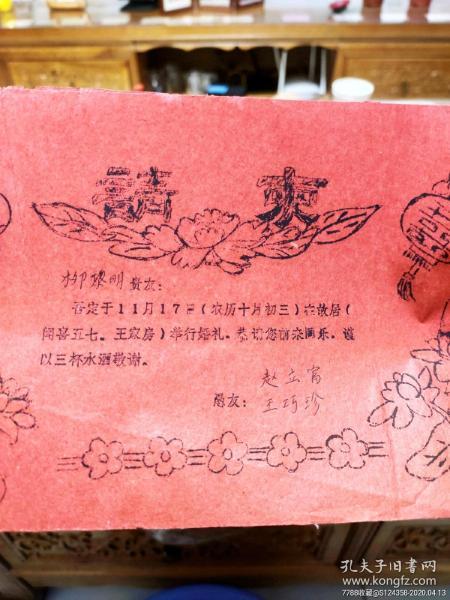 請柬
柳黎明贵友：
吾定于11月17日（农历十月初三）在故居（
闻喜五七。王家房）举行婚礼。恭请您前来同乐。谨
以三杯水酒敬谢。
赵立富
愚友：王巧珍
孔夫子旧书网
www.kongfz.com
7788收藏@S124358-2020.04.13